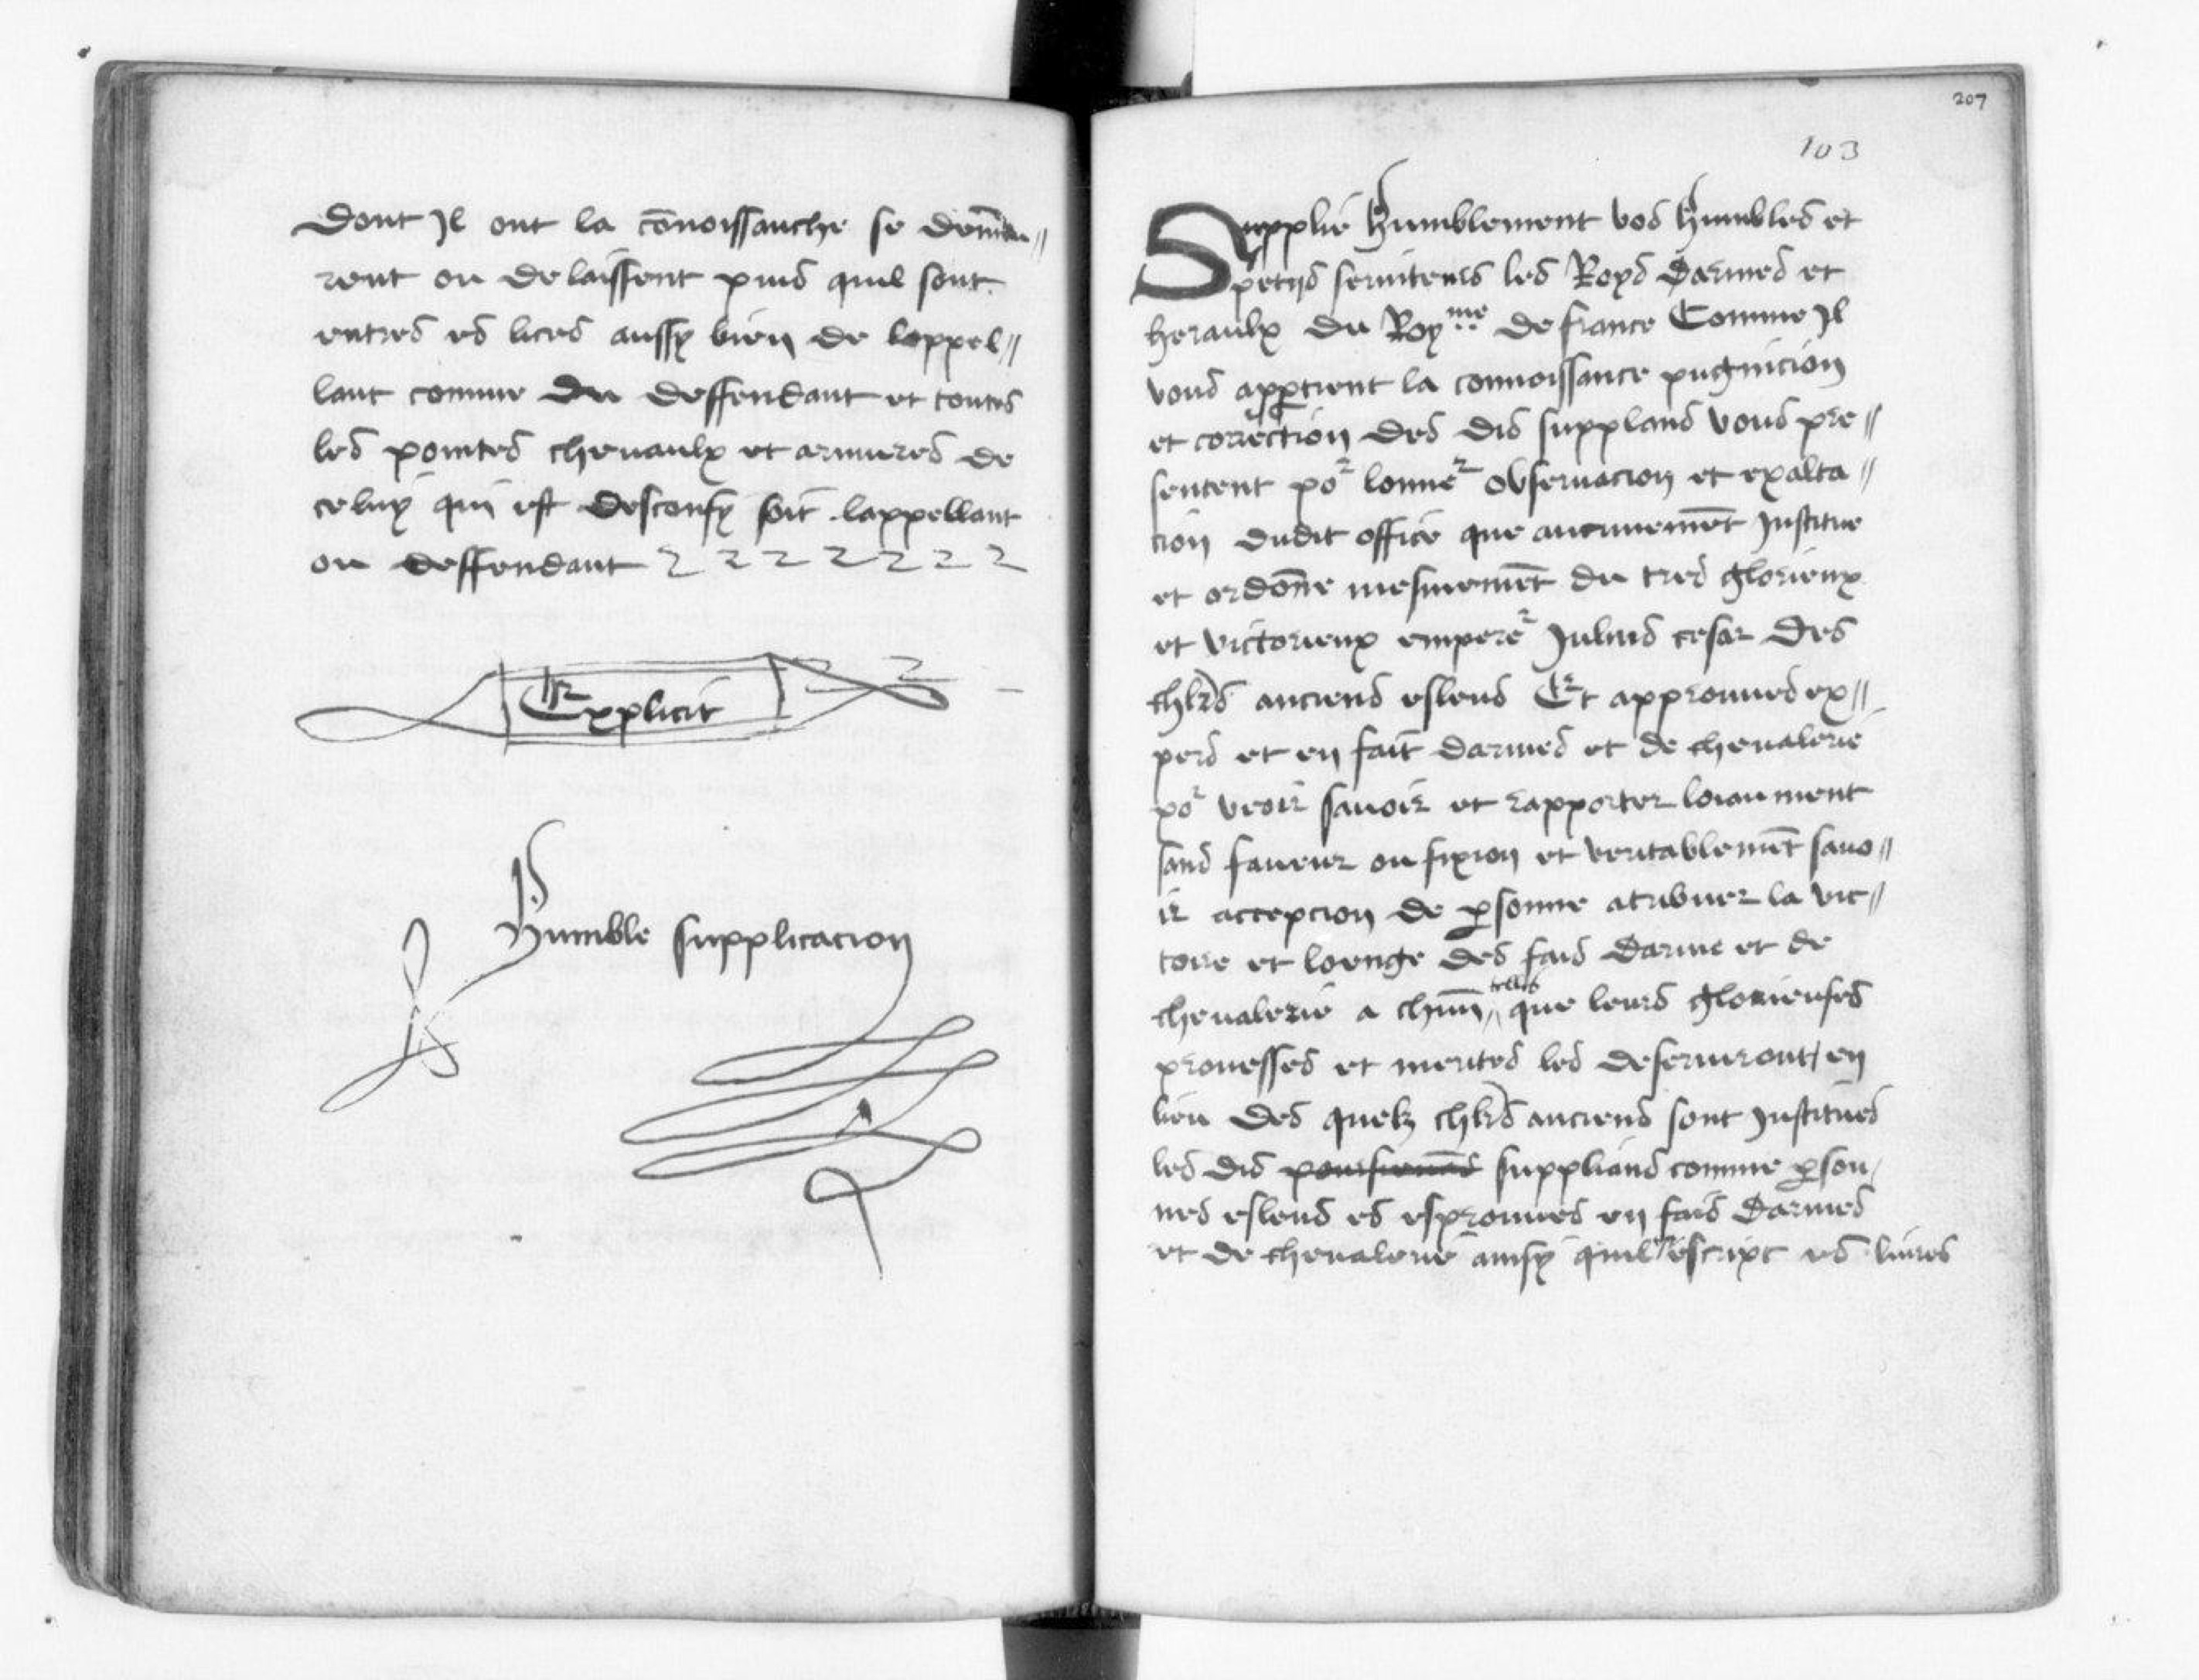 dont Jl ont la cōnoissanche se dem̄eu〃
rent ou delaissent puis quil sont
entres es lices aussy bien de lappel〃
lant comme du deffendant et toutes
les pointes chevaulx et armures de
celuy qui est desconfy soit lappellant
ou deffendant
Explicit
Humble supplicacion
207
103
Supplie humblement vos humbles et
petijs seruiteurs les Roys darmes et
heraulx du Royme de france Comme Jl
vous appartient la connoissance pugnicion
et correction des dis supplans vous pre〃
sentent por lonner obseruacion et exalta〃
cion dudit office que anciennemēt Justitue
et ordōne mesmemēt du tres glorieux
et victorieux emperer Julius cesar des
chlrs anciens esleus Et approuues ex〃
pers et en fait darmes et de cheualerie
por veoir sauoir et rapporter loiaument
sans faueur ou fixion et veritablemēt sauo〃
ir accepcion de psonne atribuer la vic〃
toire et loenge des fais darme et de
cheualerie a chun telles que leurs glorieuses
prouesses et merites les deseruiront / en
lieu des quelz chlrs anciens sont Justitues
les dis suppliāns comme pson/
nes esleus es esprouues en fais darmes
et de cheualerie ainsy quil escript es liures